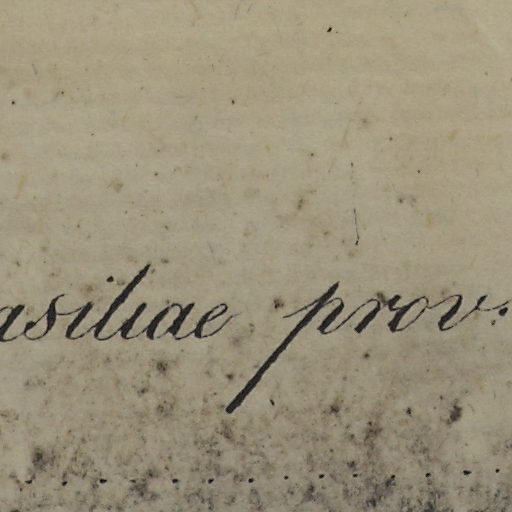 asiliae prov.